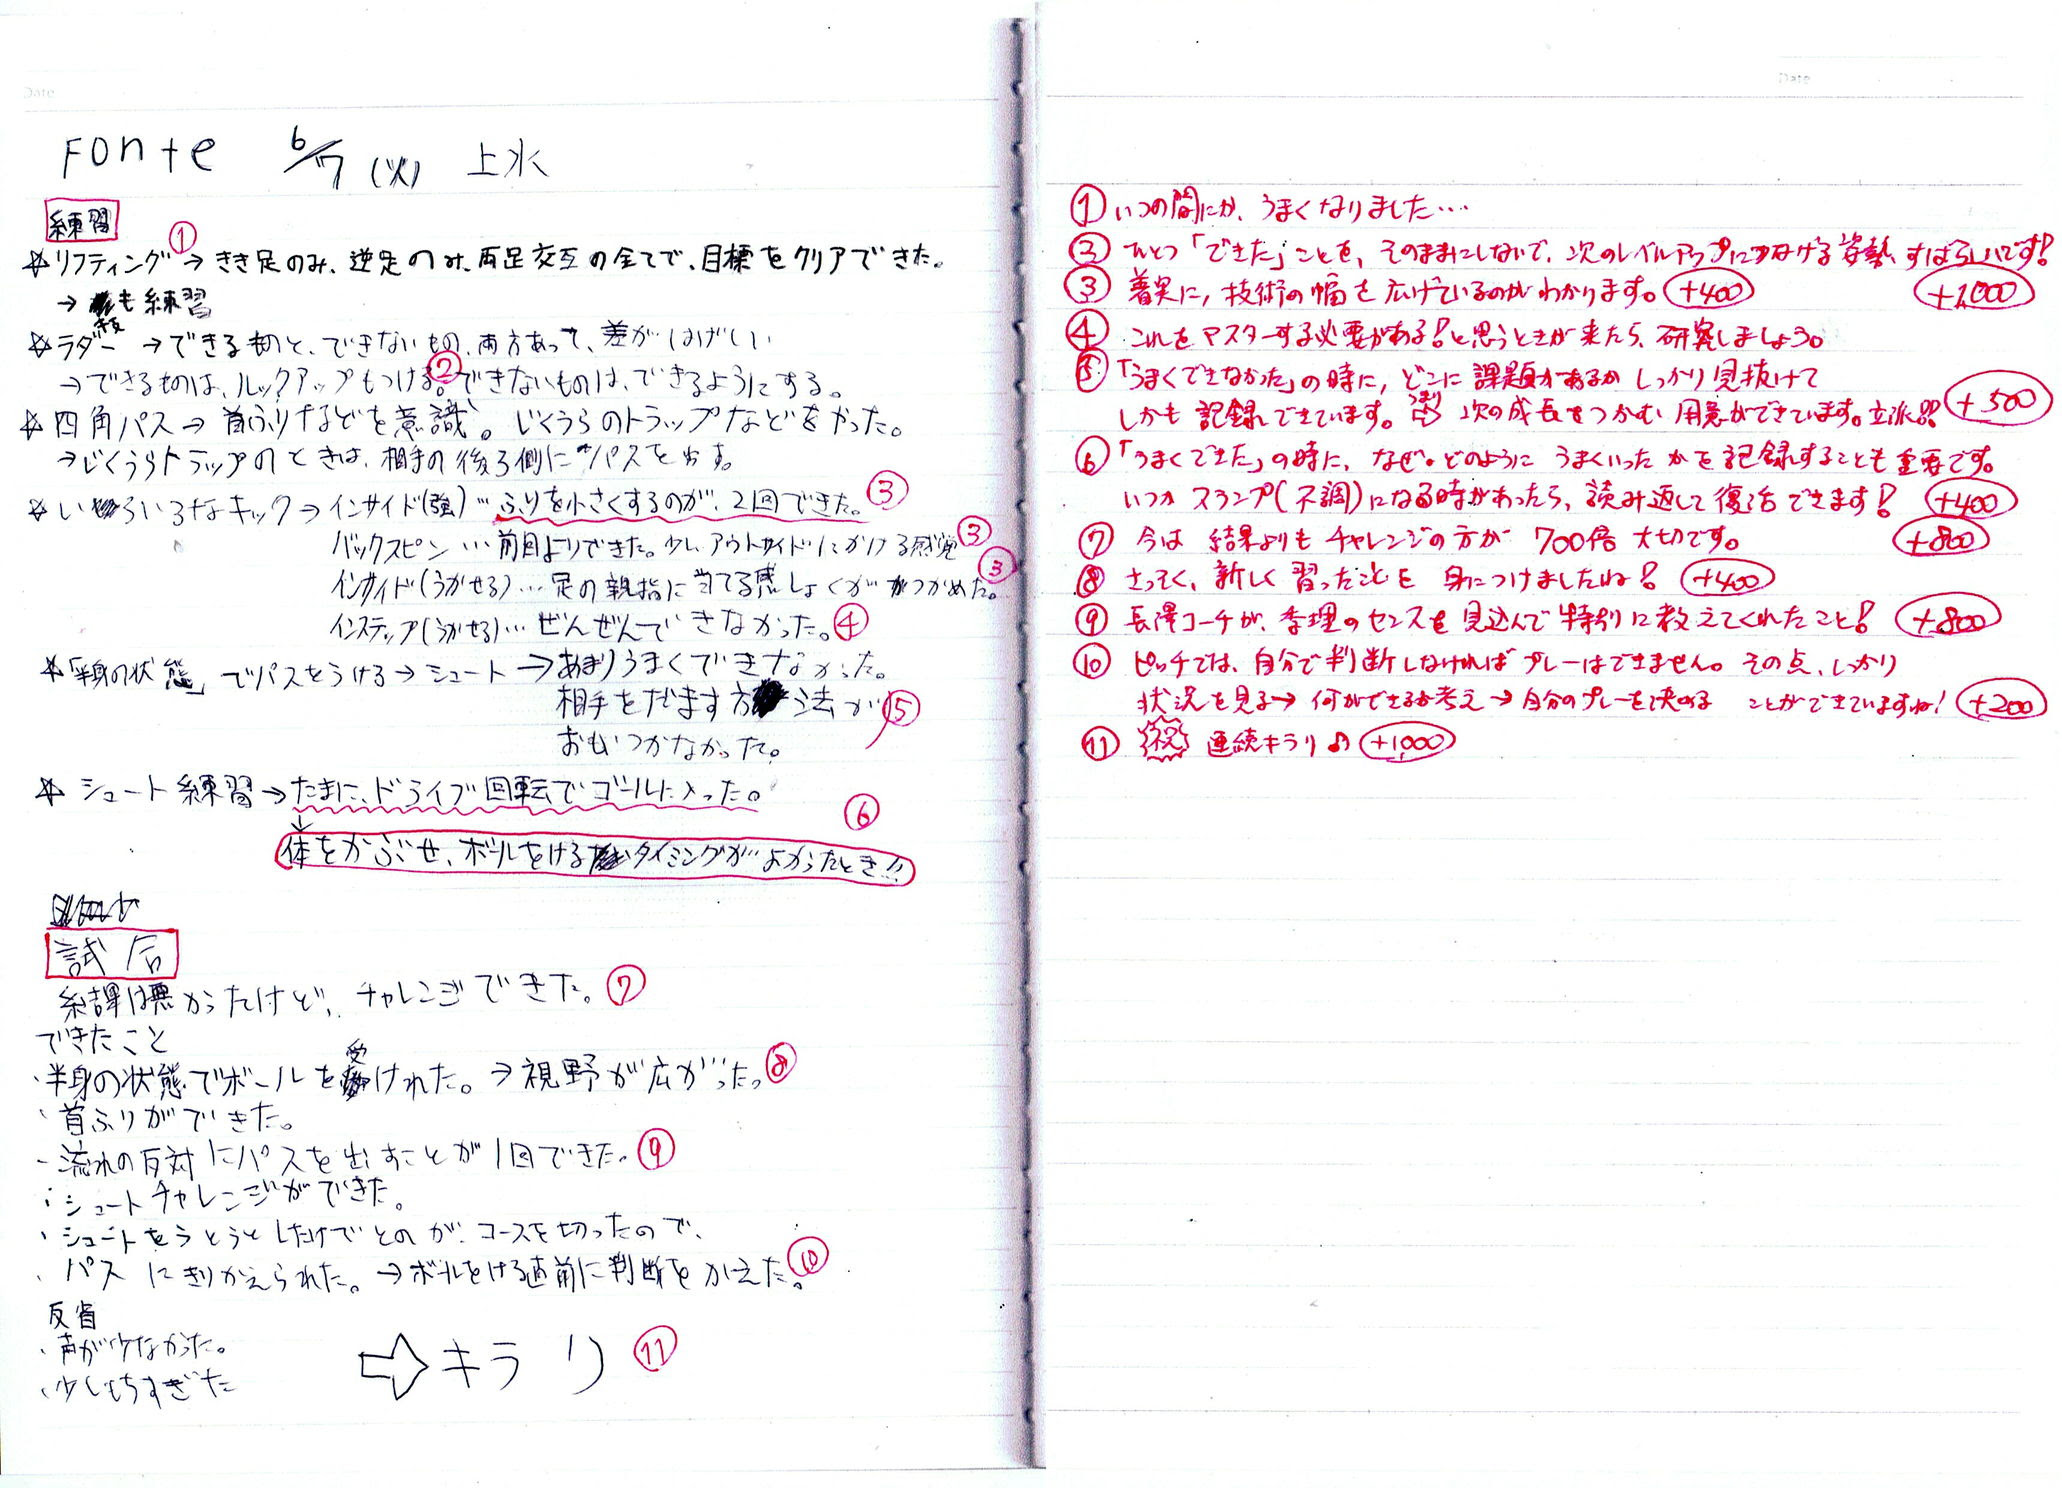 Date
Fonte 6/7 (火) 上水
練習
①
☆リフティング→きき足のみ、逆足のみ、両足交互の全てで、目標をクリアできた。
→も練習
☆ラダー→できるものと、できないもの、両方あって、差がはげしい
→できるものは、ルックアップもつける。②できないものは、できるようにする。
☆四角パス→首ふりなどを意識。じくうらのトラップなどをやった。
→じくうらトラップのときは、相手の後ろ側にパスを出す。
☆いろいろなキック→インサイド(強)…ふりを小さくするのが、2回できた。③
バックスピン…前回よりできた。少しアウトサイドにかける感覚③
インサイド(うかせる)…足の親指に当てる感しょくがつかめた。③
インステップ(うかせる)…ぜんぜんできなかった。④
☆「半身の状態」でパスをうける→シュート→あまりうまくできなかった。
相手をだます方法が⑤
おもいつかなかった。
☆シュート練習→たまに、ドライブ回転でゴールに入った。
↓
⑥
体をかぶせ、ボールをけるタイミングがよかったとき!!
試合
結果は悪かったけど、チャレンジできた。⑦
できたこと
・半身の状態でボールを受けれた。→視野が広がった。⑧
・首ふりができた。
・流れの反対にパスを出すことが1回できた。⑨
・シュートチャレンジができた。
・シュートをうとうとしたけどとのが、コースを切ったので、
・パスにきりかえられた。→ボールをける直前に判断をかえた。⑩
反省
・声が少なかった。
・少しもちすぎた
⇨キラリ ⑪
Date
①いつの間にか、うまくなりました…
②ひとつ「できた」ことを、そのままにしないで、次のレベルアップにつなげる姿勢、すばらしいです!
+1,000
③着実に、技術の幅を広げているのがわかります。+400
④これをマスターする必要がある!と思うときが来たら、研究しましょう。
⑤「うまくできなかった」の時に、どこに課題があるかしっかり見抜けて
しかも記録できています。つまり⇨次の成長をつかむ用意ができています。立派!! +500
⑥「うまくできた」の時に、なぜ・どのようにうまくいったかを記録することも重要です。
いつかスランプ(不調)になる時があったら、読み返して復活できます! +400
⑦今は結果よりもチャレンジの方が700倍大切です。+800
⑧さっそく、新しく習ったことを身につけましたね! +400
⑨長澤コーチが、季理のセンスを見込んで特別に教えてくれたこと! +800
⑩ピッチでは、自分で判断しなければプレーはできません。その点、しっかり
状況を見る→何ができるか考え→自分のプレーを決めることができていますね! +200
⑪祝 連続キラリ♪ +1,000